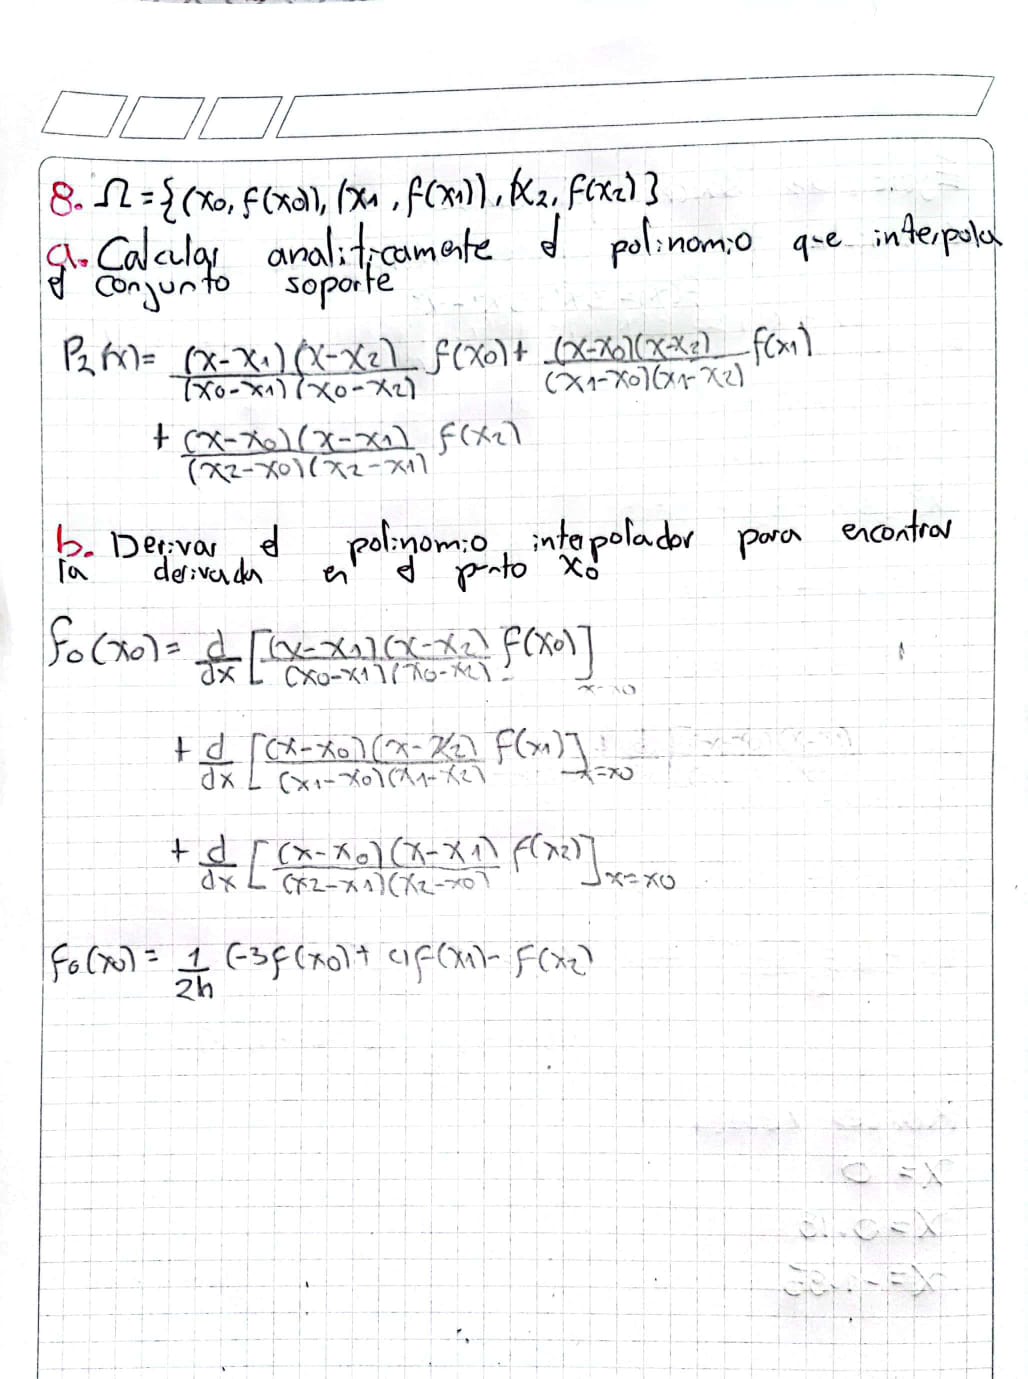 8. Ω = {(x0, f(x0)), (x1, f(x1)), (x2, f(x2)}
a. Calcular analiticamente el polinomio que interpola
el conjunto soporte
P2(x)= (x-x1)(x-x2)/(x0-x1)(x0-x2) f(x0) + (x-x0)(x-x2)/(x1-x0)(x1-x2) f(x1)
+ (x-x0)(x-x1)/(x2-x0)(x2-x1) f(x2)
b. Derivar el polinomio interpolador para encontrar
la derivada en el punto x0
fo(x0) = d/dx [(x-x1)(x-x2)/(x0-x1)(x0-x2) f(x0)] x=x0
+ d/dx [(x-x0)(x-x2)/(x1-x0)(x1-x2) f(x1)] x=x0
+ d/dx [(x-x0)(x-x1)/(x2-x1)(x2-x0) f(x2)] x=x0
fo(x0) = 1/2h (-3f(x0) + 4f(x1) - f(x2)